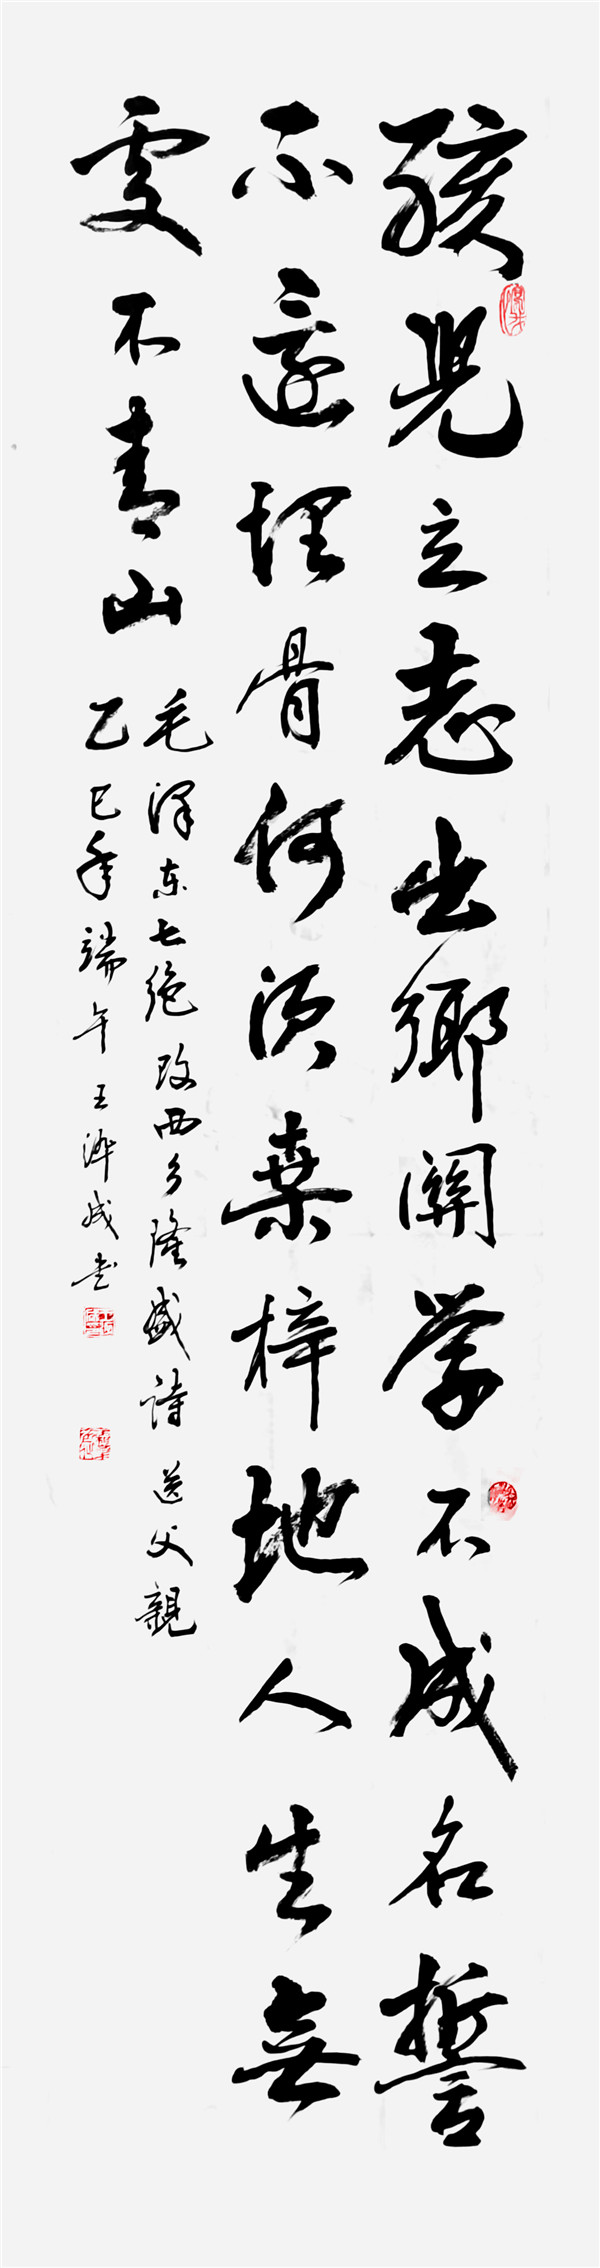 孩兒立志出鄉關学不成名誓
不還埋骨何須桑梓地人生無
處不青山
毛澤东七绝改西乡隆盛詩送父親
乙巳年端午王济成书